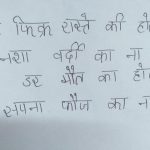 फिक्र रास्ते की हो
नशा वर्दी का ना
डर मौत का हो
सपना फौज का न